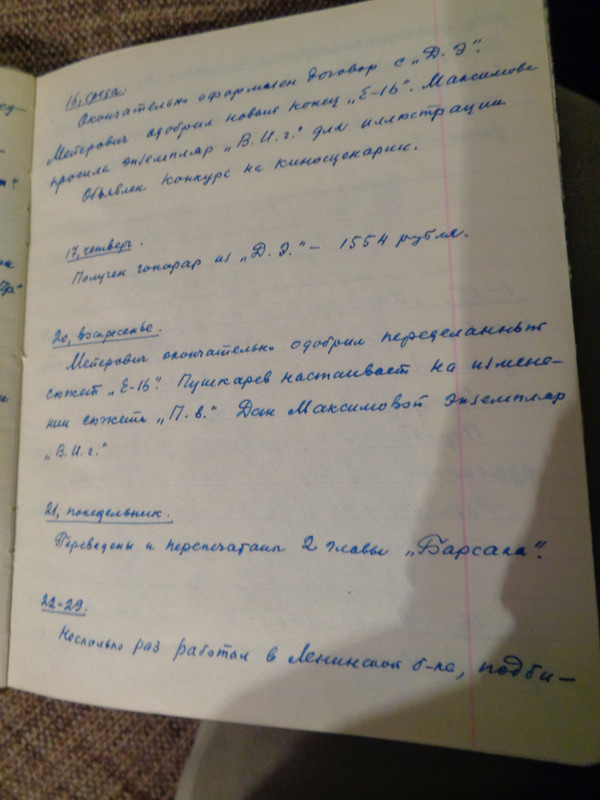 16, среда.
Окончательно оформлен договор с „Д. Э."
Метерович одобрил новый конец „Е-16". Максимова
просила экземпляр „В. И. г." для иллюстрации.
Объявлен конкурс на киносценарии.
17, четверг.
Получен гонорар из „Д. Э." — 1554 рубля.
20, воскресенье.
Метерович окончательно одобрил переделанный
сюжет „Е-16". Пушкарев настаивает на измене-
нии сюжета „П. в." Дан Максимовой экземпляр
„В. И. г."
21, понедельник.
Переведены и перепечатаны 2 главы „Барсака".
22-29.
Несколько раз работал в Ленинской б-ке, подби-
ед-